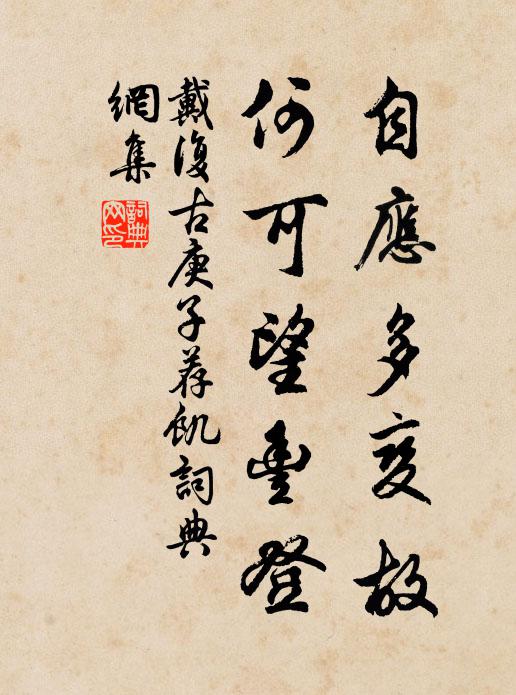 自應多變故
何可望豐登
戴復古庚子荐飢詞典
網集
詞典網印